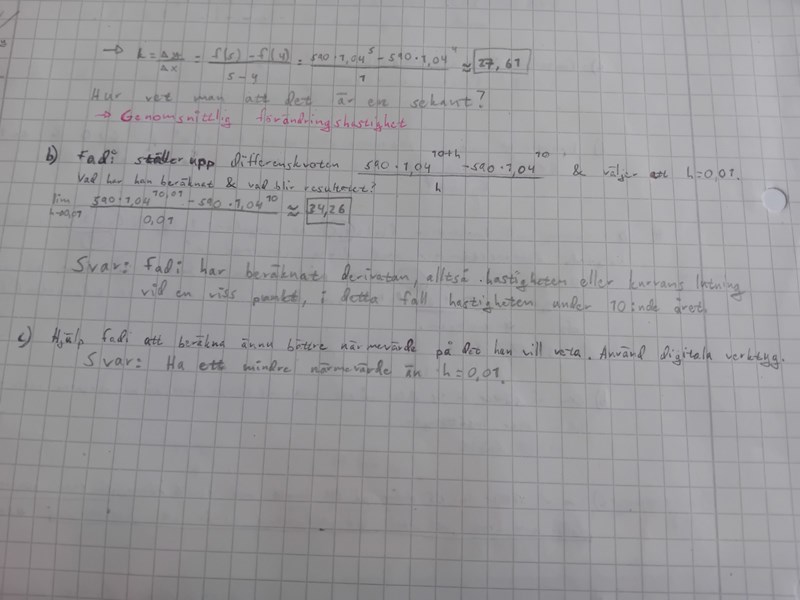 → k = Δy/Δx = f(5) - f(4) / 5-4 = 590·1,04^5 - 590·1,04^4 / 1 ≈ 27,61
Hur vet man att det är en sekant?
→ Genomsnittlig förändringshastighet
b) Fadi ställer upp differenskvoten 590·1,04^10+h - 590·1,04^10 / h & väljer att h=0,01.
Vad har han beräknat & vad blir resultatet?
lim h→0,01 590·1,04^10,01 - 590·1,04^10 / 0,01 ≈ 34,26
Svar: Fadi har beräknat derivatan, alltså hastigheten eller kurvans lutning
vid en viss punkt, i detta fall hastigheten under 10:inde året
c) Hjälp Fadi att beräkna ännu bättre närmevärde på det han vill veta. Använd digitala verktyg.
Svar: Ha ett mindre närmevärde än h=0,01.